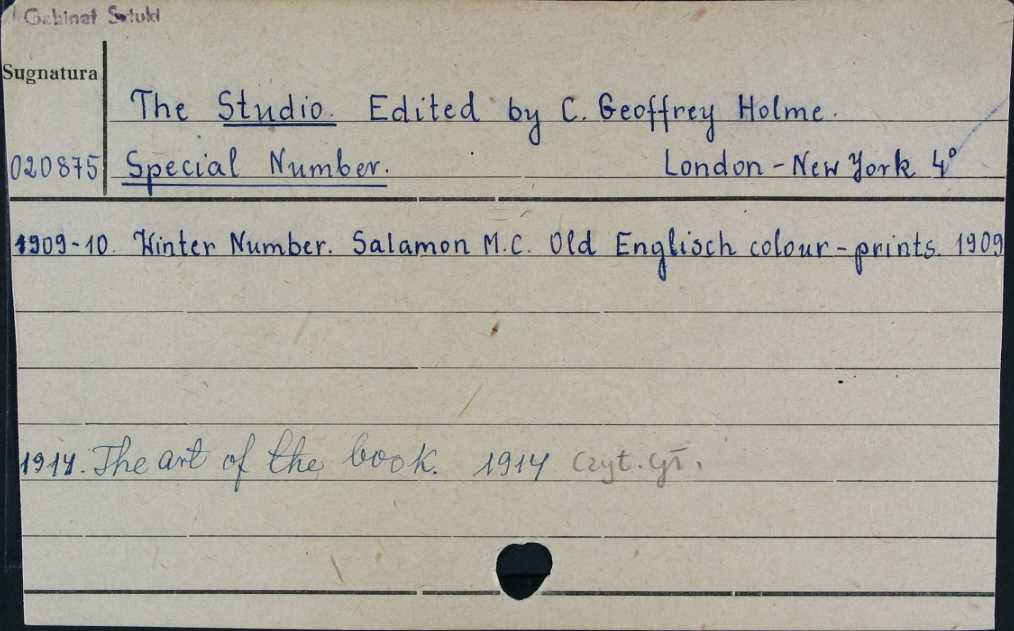 Gabinet Sztuki
Sugnatura
The Studio. Edited by C. Geoffrey Holme.
020875 Special Number. London - New York 4°
1909-10. Winter Number. Salamon M.C. Old Englisch colour-prints. 1909
1914. The art of the book. 1914 Czyt. gł.